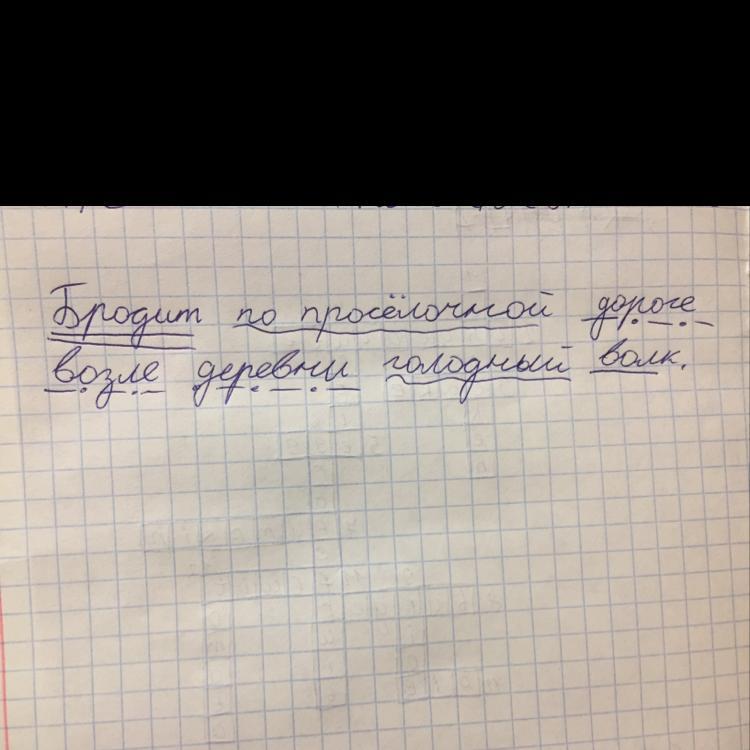 Бродит по просёлочной дороге
возле деревни голодный волк.